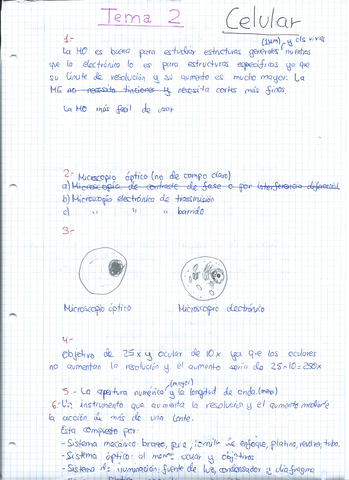 Tema 2 Celular
1-
(1µm), y cls vivas
La MO es buena para estudiar estructuras generales mientras
que la electrónica lo es para estructuras específicas ya que
su límite de resolución y su aumento es mucho mayor. La
ME no necesita tinciones y necesita cortes más finos.
La MO más fácil de usar
2- Microscopio óptico (no de campo claro)
a) Microscopio de contraste de fase o por interferencia diferencial
b) Microscopio electrónico de transmisión
c) " " " barrido
3-
Microscopio óptico Microscopio electrónico
4-
Objetivo de 25x y ocular de 10x ya que los oculares
no aumentan la resolución y el aumento sería de 25×10=250x
(mayor)
5.- La apertura numérica y la longitud de onda. (menor)
6.- Un instrumento que aumenta la resolución y el aumento mediante
la acción de más de una lente.
Esta compuesto por:
- Sistema mecánico: brazo, pie, tornillo de enfoque, platina, revolver, tubo.
- Sistema óptico: al menos ocular y objetivos
- Sistema de iluminación: fuente de luz, condensador y diafragma